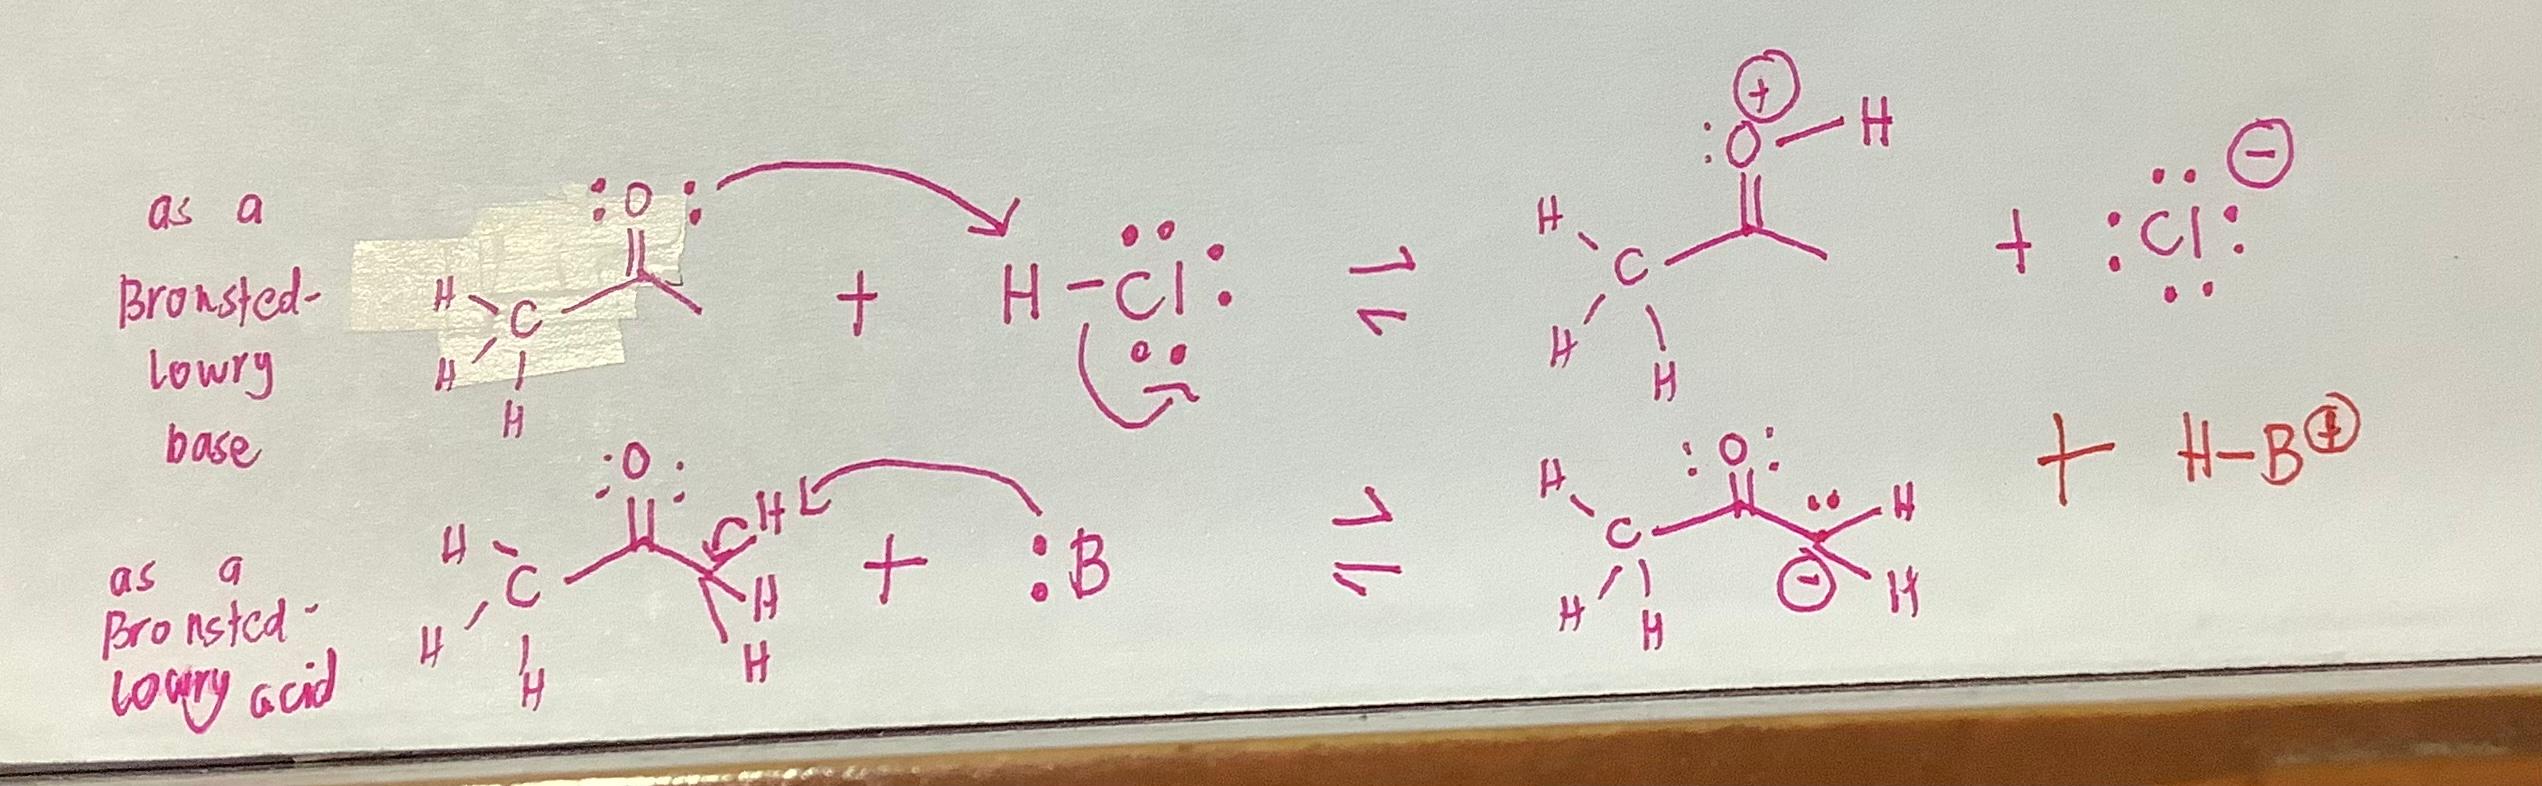 as a
Bronsted-
lowry
base
:O:
H C
H
H
+
H-Cl
⇌
⊕
:O-H
H C
H
H
+
:Cl: ⊖
as a
Bronsted-
lowry acid
:O:
H C
H
H
H
H
H
+
:B
⇌
:O:
H C
H
H
H
H
⊖
+ H-B⊕